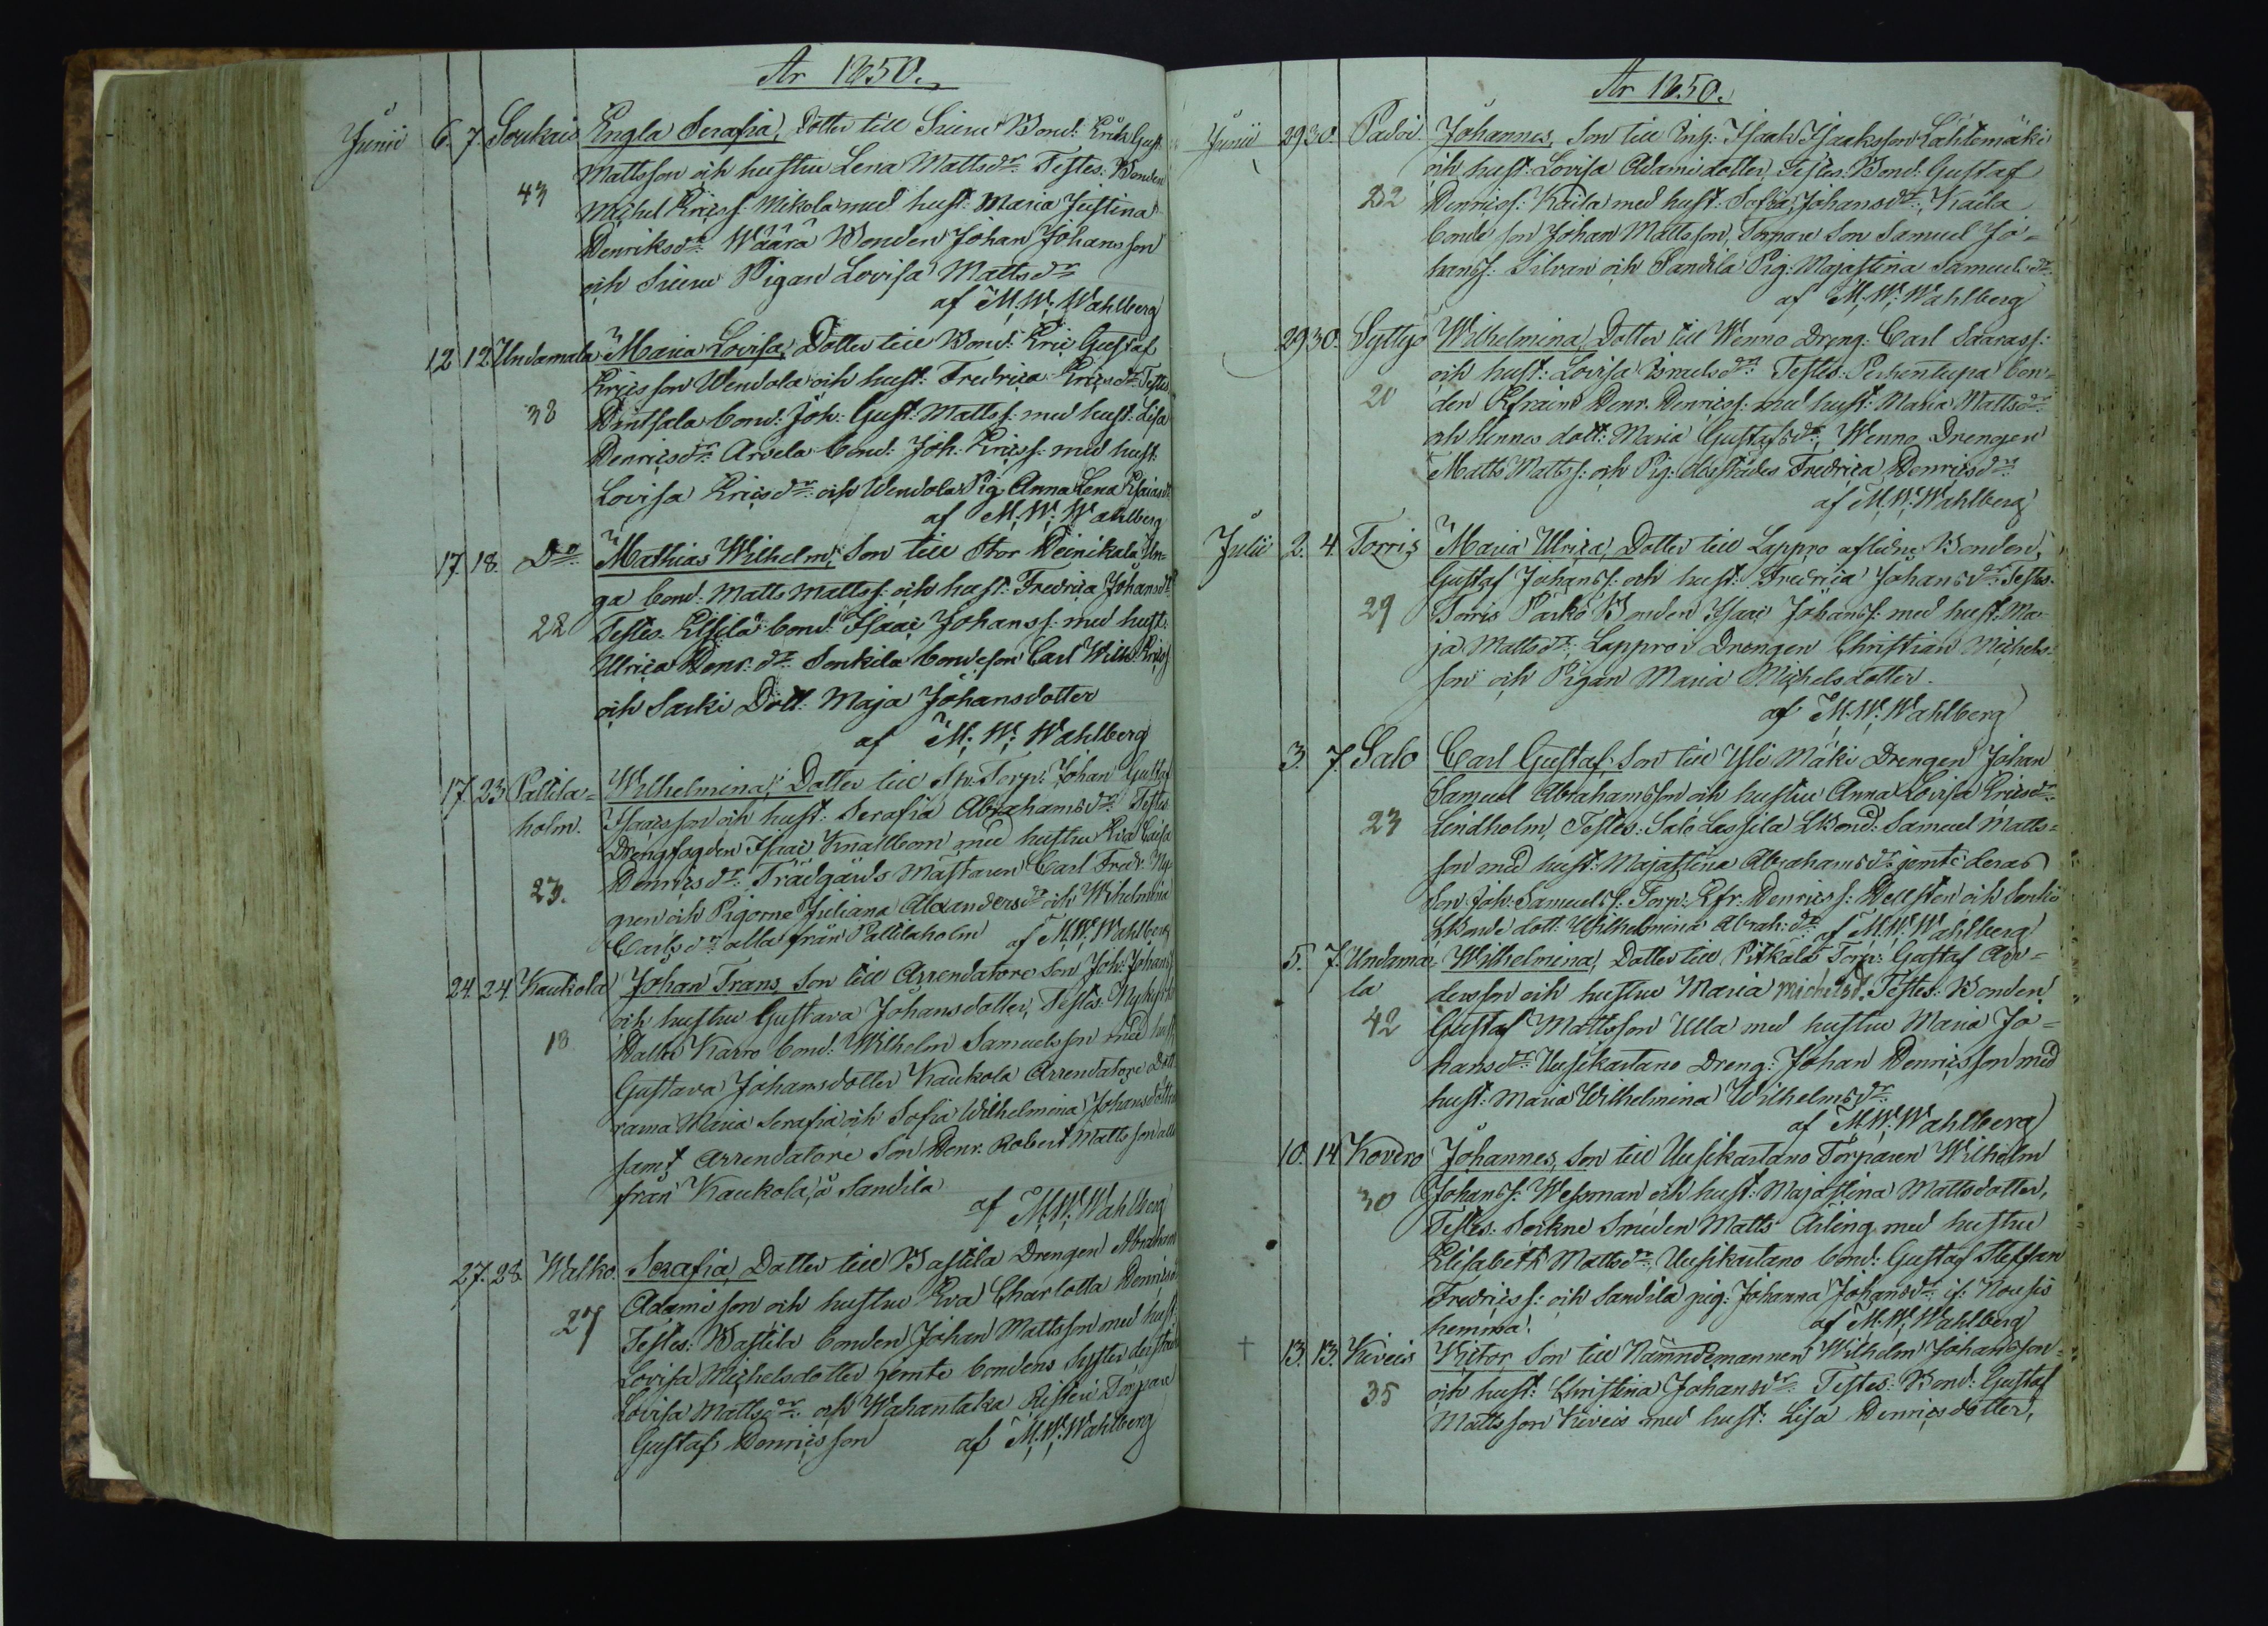 År 1850.
Junii 6. 7. Soukais Engla Serafia, Dotter till Bond: Erik Gust.
Mattsson och hustru Lena Mattsdr. Testes: Bonden
43 Michel Ericss: Mikola med hust: Maria Justina
Henriksdr. Wäärä Bonden Johan Johansson
och Pigan Lovisa Mattsdr
af M: W: Wahlberg
12 12 Undamala Maria Lovisa, Dotter till Bond: Eric Gustaf
Ericsson Wendola och hust: Fredrica Ericsdr. Testes
38 Hintsala bond: Joh: Gust: Mattss: med hust: Lisa
Henricsdr. Arvela bond: Joh: Ericss: med hust
Lovisa Ericsdr. och Wendola Pig. Anna Lena Esaiasdr
af M: W: Wahlberg
17. 18. Do. Mathias Wilhelm, Son till Stor Heinikala Un-
ga bond: Matts Mattss: och hust: Fredrica Johansdr
22 Testes. bond: Isaac Johanss: med hust:
Ulrica Henr: dr. Sonkila bondeson Carl Wilh: Ericss
och Sarki Dott: Maja Johansdotter
af M: W: Wahlberg
17. 23 Pallila- Wilhelmina, Dotter till Torp: Johan Gustaf
holm. Isaacsson och hust: Serafia Abrahamsdr. Testes
Drengfogden Isaac med hustru Eva Caisa
23. Henricsdr. Trädgårds Mästaren Carl Fredr: Ny-
gren och Pigorne Juliana Alexandersdr och Wilhelmina
Carlsdr alla från Pallilaholm af M: W: Wahlberg
24. 24. Kaukola Johan Frans, Son till Arrendatore Son Joh: Johanss
och hustru Gustava Johansdotter, Testes: Nykyrko
18 Karro bond: Wilhelm Samuelsson med hust
Gustava Johansdotter Kaukola Arrendatore Dött
rarna Maria Serafia och Sofia Wilhelmina Johansdotter
samt Arrendatore Son Henr. Robert Mattsson alla
från Kaukola å Sandila
af M: W: Wahlberg
27. 28. Walko. Serafia, Dotter till Wastila Drengen Abraham
Adamisson och hustru Eva Charlotta Henricsd
27 Testes: Wastila bonden Johan Mattsson med hust:
Lovisa Michelsdotter jemte bondens syster
Lovisa Mattsdr. och Wahantaka Risteri Torpare
Gustaf Henricsson af M: W: Wahlberg
År 1850.
Junii 29 30. Padoi. Johannes, Son till Inh: Isaak Isaaksson Lähtemäki
och hust: Lovisa Adami dotter, Testes: Bond: Gustaf
22 Henricss: Kaila med hust: Sofia Johansdr., Kaila
bonde son Johan Mattsson, Torpare Son Samuel Jo-
hanss: Silvan och Sandila Pig: Majastina Samuelsdr.
af M: W: Wahlberg
29 30. Syttyö Wilhelmina, Dotter till Wenno Dreng: Carl Saarass:
och hust: Lovisa Israelsdr. Testes: Perhentupa bon-
20 den Efraim Henr. Henricss: med hust: Maria Mattsdr
och hennes dott: Maria Gustafsdr., Wenno Drengen
Matts Mattss: och Pig: Fredrica Henricsdr
af M: W: Wahlberg
Julii 2. 4. Torris Maria Ulrica, Dotter till Lappro aflidne Bonden,
Gustaf Johanss: och hust: Fredrica Johansdr. Testes.
29 Torris Parko Bonden Isaac Johanss: med hust: Ma-
ja Mattsdr. Lapproi Drengen Christian Michels-
son och Pigan Maria Michelsdotter.
af M: W: Wahlberg
3. 7. Salo Carl Gustaf, Son till Yli Mäki Drengen Johan
Samuel Abrahamsson och hustru Anna Lovisa Ericsdr.
23 Lindholm, Testes: Salo Lassila Bond: Samuel Matts-
son med hust: Majastina Abrahamsdr jemte deras
Son Joh: Samuelss: Torp: Efr: Henricss: Hellsten och Sonkio
Bonde dott: Wilhelmina Abrah: dr. af M: W: Wahlberg
5. 7. Undama- Wilhelmina, Dotter till Pitkälä Torp: Gustaf An-
la dersson och hustru Maria Michelsd. Testes: Bonden
42 Gustaf Mattsson Ulla med hustru Maria Jo-
hansdr. Uusikartano Dreng: Johan Henricsson med
hust: Maria Wilhelmina Wilhelmsdr.
af M: W: Wahlberg
10. 14 Kovero Johannes, Son till Uusikartano Torparen Wilhelm
30 Johanss: Wesoman och hust: Majastina Mattsdotter,
Testes. Sockne Smeden Matts Ärling med hustru
Elisabeth Mattsdr. Uusikartano bond: Gustaf Steffan
Fredricss: och Sandila pig: Johanna Johansdr. if: Nousis
hemma. af M: W: Wahlberg
+ 13. 13. Kiveis Victor, Son till Nämndemannen Wilhelm Johansson
35 och hust: Christina Johansdr. Testes: Bond: Gustaf
Mattsson Kiveis med hust: Lisa Henricsdotter,